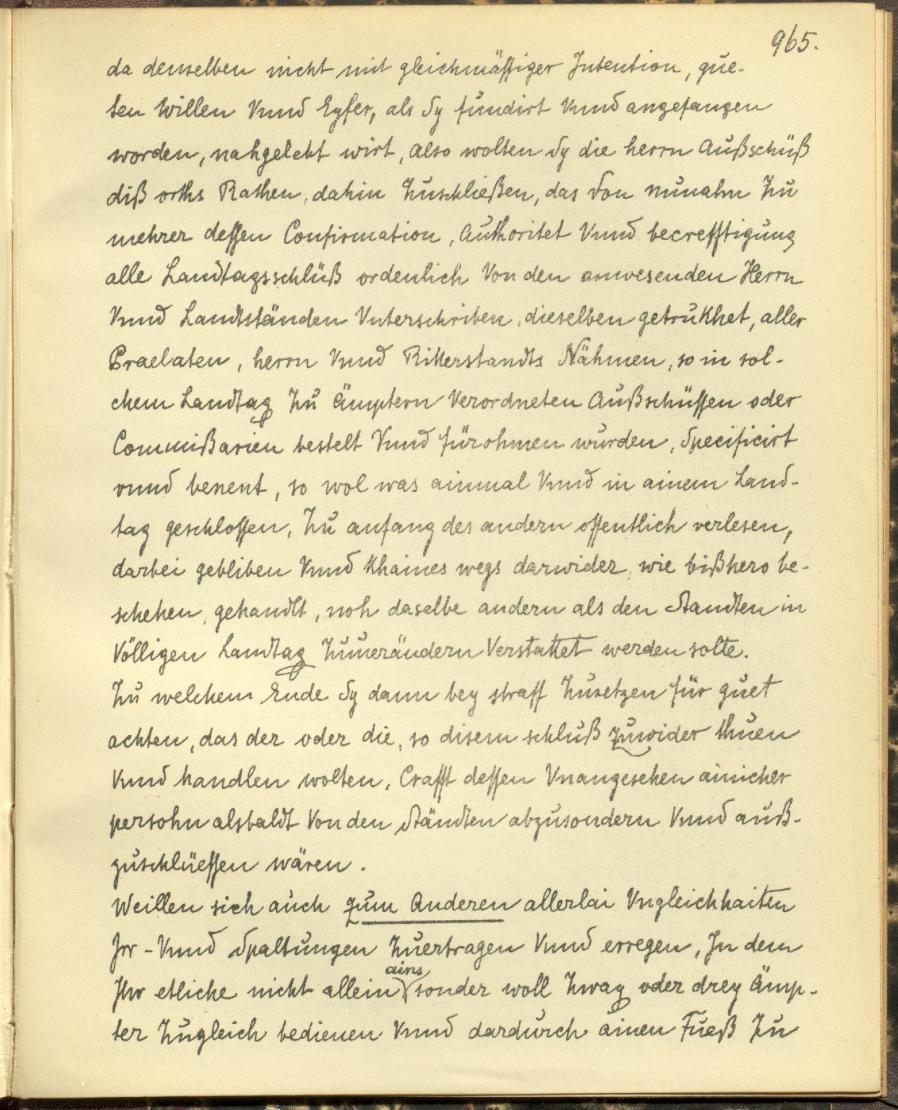 965.
da denselben nicht mit gleichmäffiger Intention, gue-
ten willen Vnnd Eyfer, als Sy fundirt Vnnd angefangen
worden, nahgelebt wirt, also wolten Sy die herrn Außschüß
diß orths Rathen, dahin Zuschließen, das Von nunahn Zu
mehrer deffen Confirmation, Authoritet Vnnd becrefftigung
alle Landtagsschlüß ordenlich Von den anwesenden Herrn
Vnnd Landtständen Vnterschriben, dieselben getrukhet, aller
Praelaten, herrn Vnnd Ritterstandts Nähmen, so in sol-
chem Landtag Zu Ämptern Verordneten Außschüffen oder
Commißarien bestelt Vnnd fürohmen wurden, Specificirt
vnnd benent, so wol was ainmal Vnnd in ainem Land-
tag geschloffen, Zu anfang des andern offentlich verlesen,
darbei gebliben Vnnd Khaines wegs darwider, wie bißhero be-
schehen, gehandlt, noh daselbe andern als den Standten in
Völligen Landtag Zuuerändern Verstattet werden solte.
Zu welchem Ende Sy dann bey straff Zusetzen für guet
achten, das der oder die, so disem schluß zuwider thuen
Vnnd handlen wolten, Crafft deffen Vnangesehen ainicher
persohn alsbaldt Von den Ständten abzusondern Vnnd auß-
zuschlüeffen wären.
Weillen sich auch zum Anderen allerlai Vngleichhaiten
Irr-Vnnd Spaltungen Zuertragen Vnnd erregen, In dem
Ihr etliche nicht allein ains sonder woll Zway oder drey Ämp-
ter Zugleich bedienen Vnnd dardurch ainen Fueß Zu